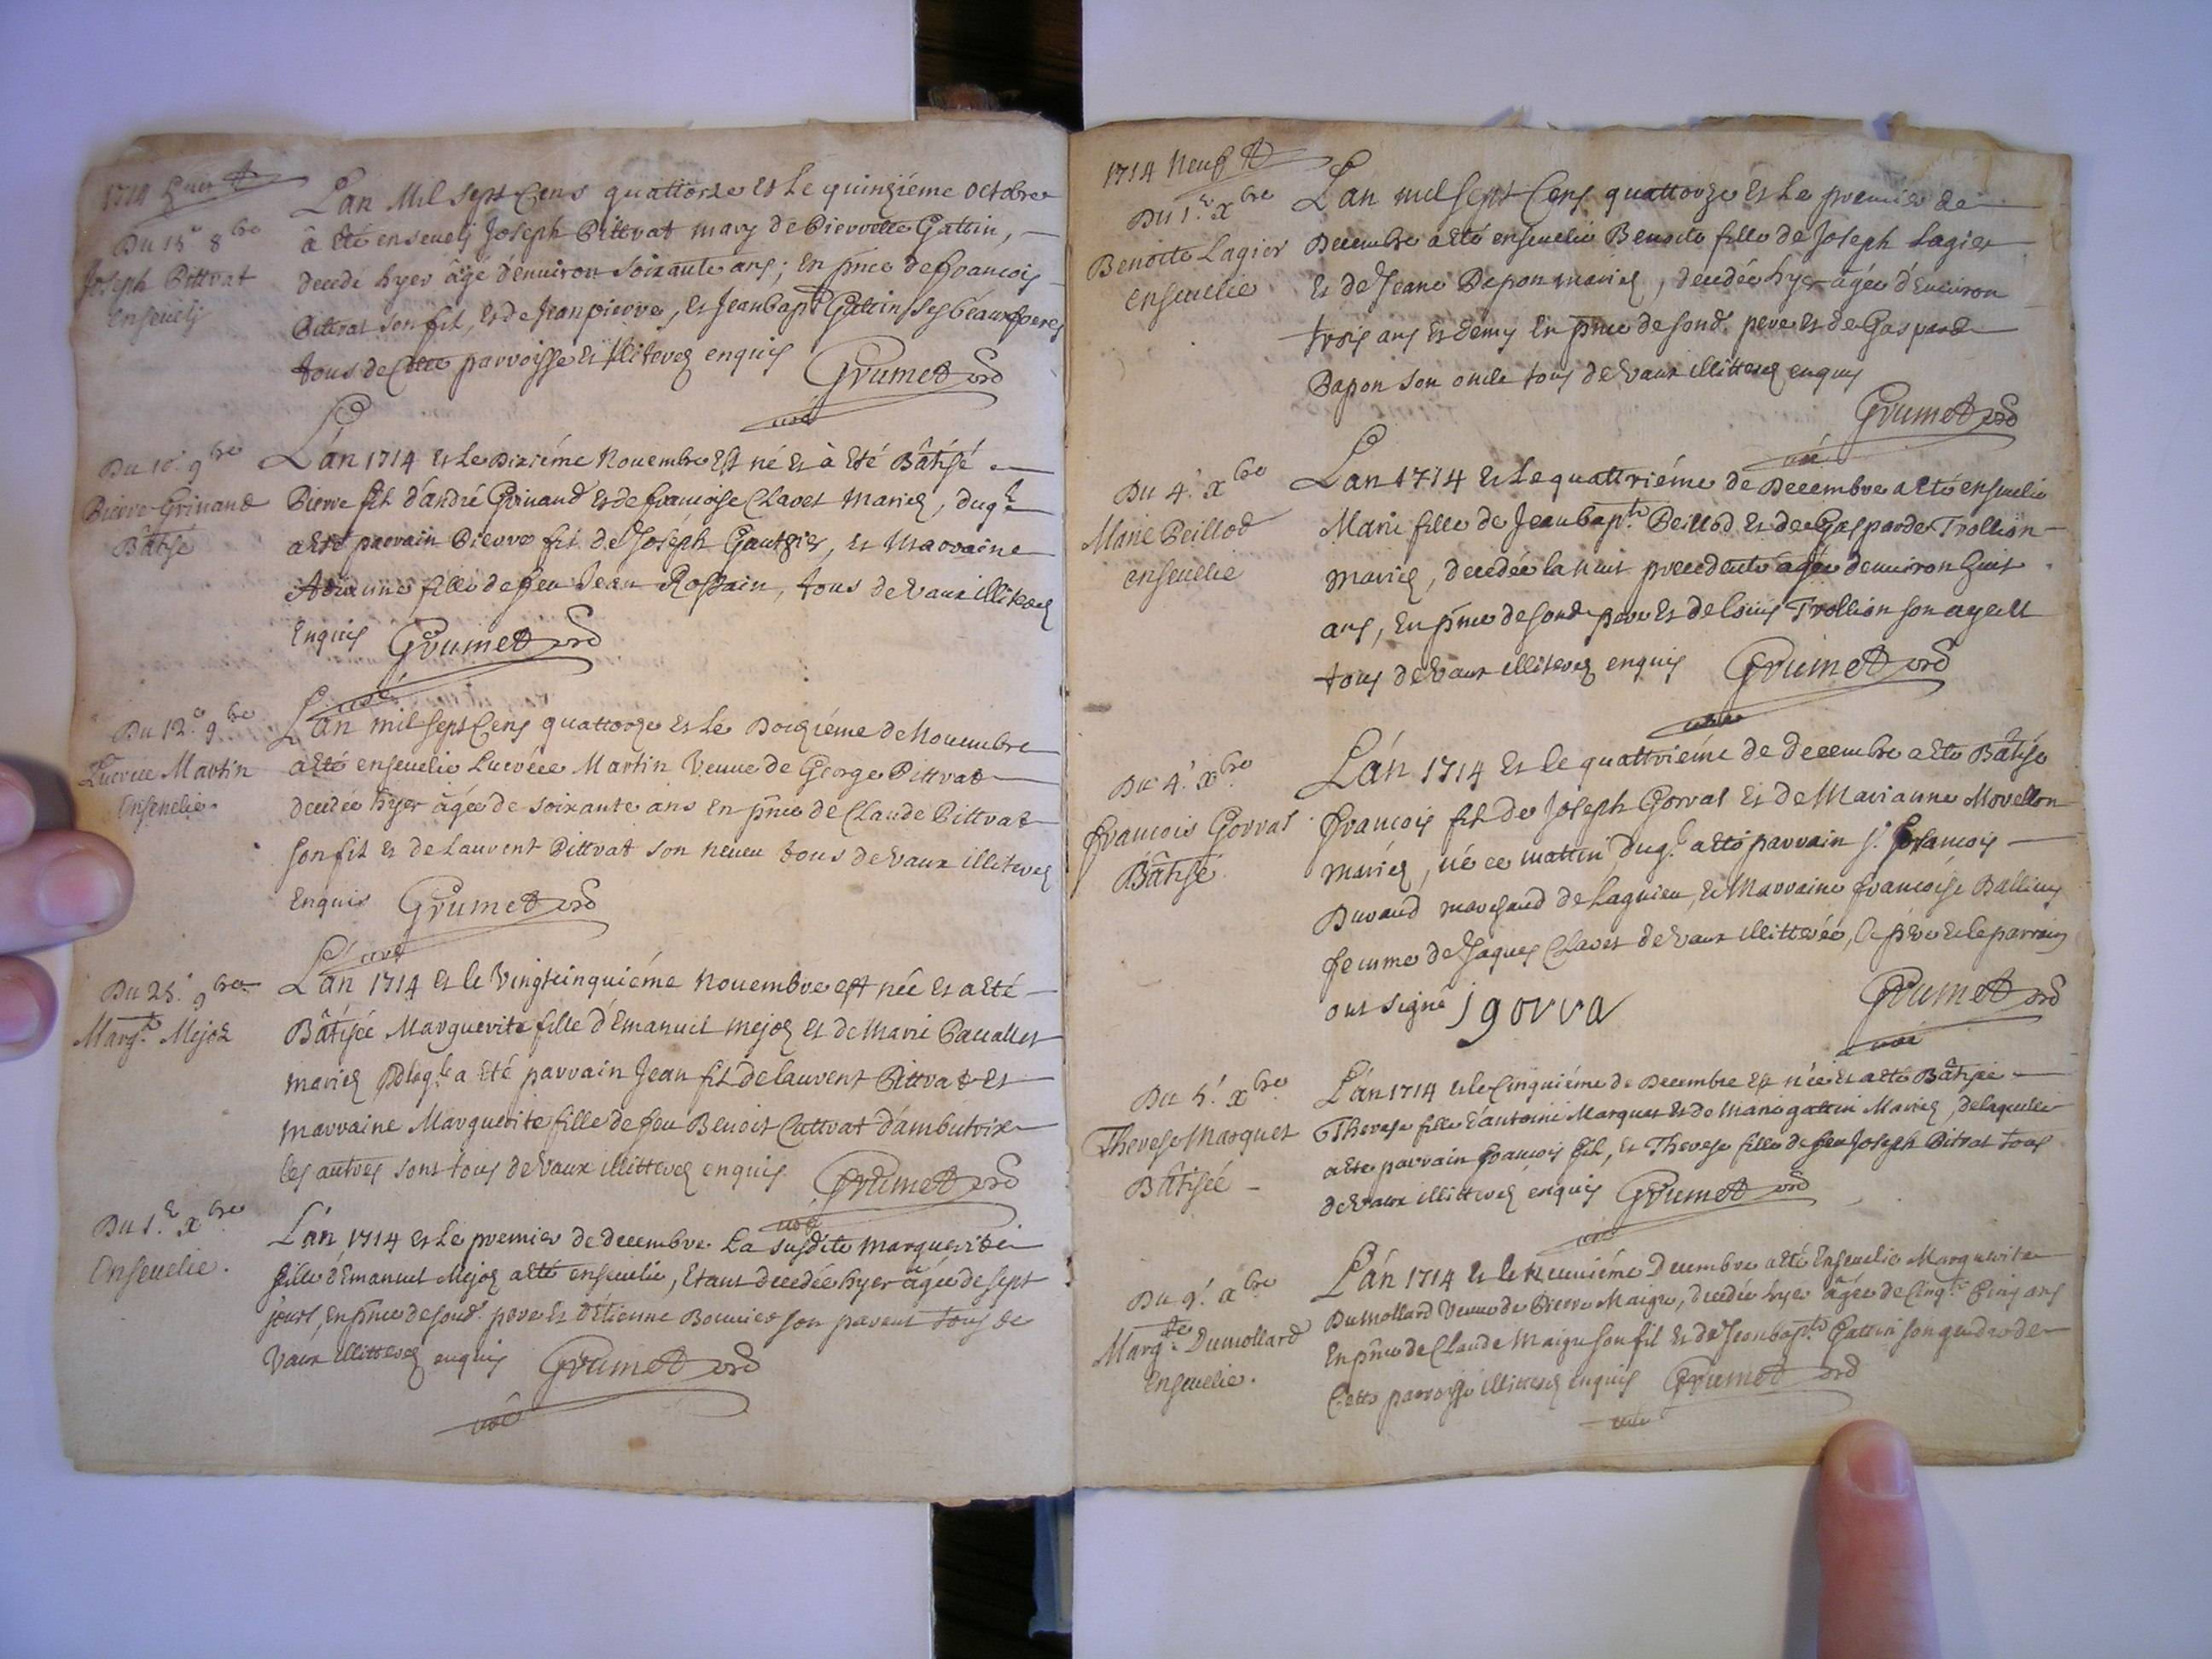 1714
Du 15e 8bre
Joseph Pittrat
ensevely
Lan Mil sept Cens quattorze Et Le quinziéme octobre
à Eté ensevelj Joseph Pittrat mary de Pierrette Gattin,
decedé hyer âgé d'environ soixante ans; En pnce de francois
Pittrat son fil, Et de Jean pierre, Et Jean bapt Gattin ses beaux freres
tous de Cette parroisse Et illiterez enquis Grumet
Du 10e 9bre
Pierre Grinand
Bâtisé
L'án 1714 Et Le Dixiéme Nouembre Est né Et à Eté Bâtisé
Pierre fil d'andré Grinand Et de francoise Clavet Mariez, duql
a Eté parrain Pierre fil de Joseph Gautgier, Et Marraine
fille de feu Jean Rostain, tous de Vaux illiterez
Enquis Grumet
Du 12e 9bre
Lucréce Martin
Ensevelie.
L'án mil sept Cens quattorze Et Le Douziéme de Nouembre
a Eté enseuelie Lucréce Martin Veuue de George Pittrat
decedée hyer âgée de soixante ans En pnce de Claude Pittrat
son fil Et de Laurent Pittrat son neueu tous de Vaux illiterez
Enquis Grumet
Du 25e 9bre
Margte Mejoz
L'án 1714 Et le Vingtcinquiéme Nouembre est née Et a Eté
Bâtisée Marguerite fille d'Emanuel Mejoz Et de Marie Pauallet
mariez de laqle a Eté parrain Jean fil de laurent Pittrat Et
marraine Marguerite fille de feu Benoit Cuttrat d'ambutrix
les autres sont tous de Vaux illitterez enquis. Grumet
Du 1er xbre
Enseuelie.
L'án 1714 Et Le premier de decembre La susdite Marguerite
fille d'Emanuel Mejoz a Eté enseuelie, Etant decedée hyer âgée de sept
jours, en pnce de sond. pere Et d'Etienne Bonnier son parent tous de
Vaux illitterez enquis Grumet
1714 Neuf
Du 1er xbre
Benoite Lagier
enseuelie
L'án mil sept Cens quattorze Et Le premier de
Decembre a Eté enseuelie Benoite fille de Joseph Lagier
Et de Jeane Papon mariez, decedée hyer âgée d'Enuiron
trois ans Et demy En pnce de sond. pere Et de Gaspard
Papon son oncle tous de Vaux illitterez enquis
Grumet
Du 4e xbre
Marie Peillod
enseuelie
Lan 1714 Et Le quattriéme de Decembre a Eté enseuelie
Marie fille de Jean bapte Peillod Et de Gasparde Trollion
mariez, decedée la nuit precedente âgée denuiron huit
ans, En pnce de sond. pere Et de Louis Trollion son ayeul
tous de Vaux illiterez enquis Grumet
Du 4e xbre
francois Gorrat
Bâtisé
L'án 1714 Et le quattriéme de decembre a Eté Bâtisé
francois fil de Joseph Gorrat Et de Marianne Morellon
mariez, né ce mattin duql a Eté parrain sr francois
Durand marchand de Lagnieu, Et Marraine francoise Ballius
femme de Jaques Clavet de Vaux illitterée, le pere Et le parrain
ont signé jgorra Grumet
Du 5e xbre
Therese Marquet
Bâtisée
L'án 1714 Et le Cinquiéme de Decembre Est née Et a Eté Bâtisée
Therese fille d'antoine Marquet Et de Marie gattin Mariez, de laquelle
a Eté parrain francois fil, Et Therese fille de feu Joseph Pitrat tous
de Vaux illitterez enquis Grumet
Du 9e xbre
Margte Dumollard
Enseuelie.
L'án 1714 Et le Neuuiéme Decembre a Eté Enseuelie Marguerite
Dumollard Veuue de Pierre Maigre, decedée hyer âgée de Cinqte Cinq ans
En pnce de Claude Maigre son fil Et de Jean bapte Gattin son gendre de
Cette parroisse illitterez enquis Grumet